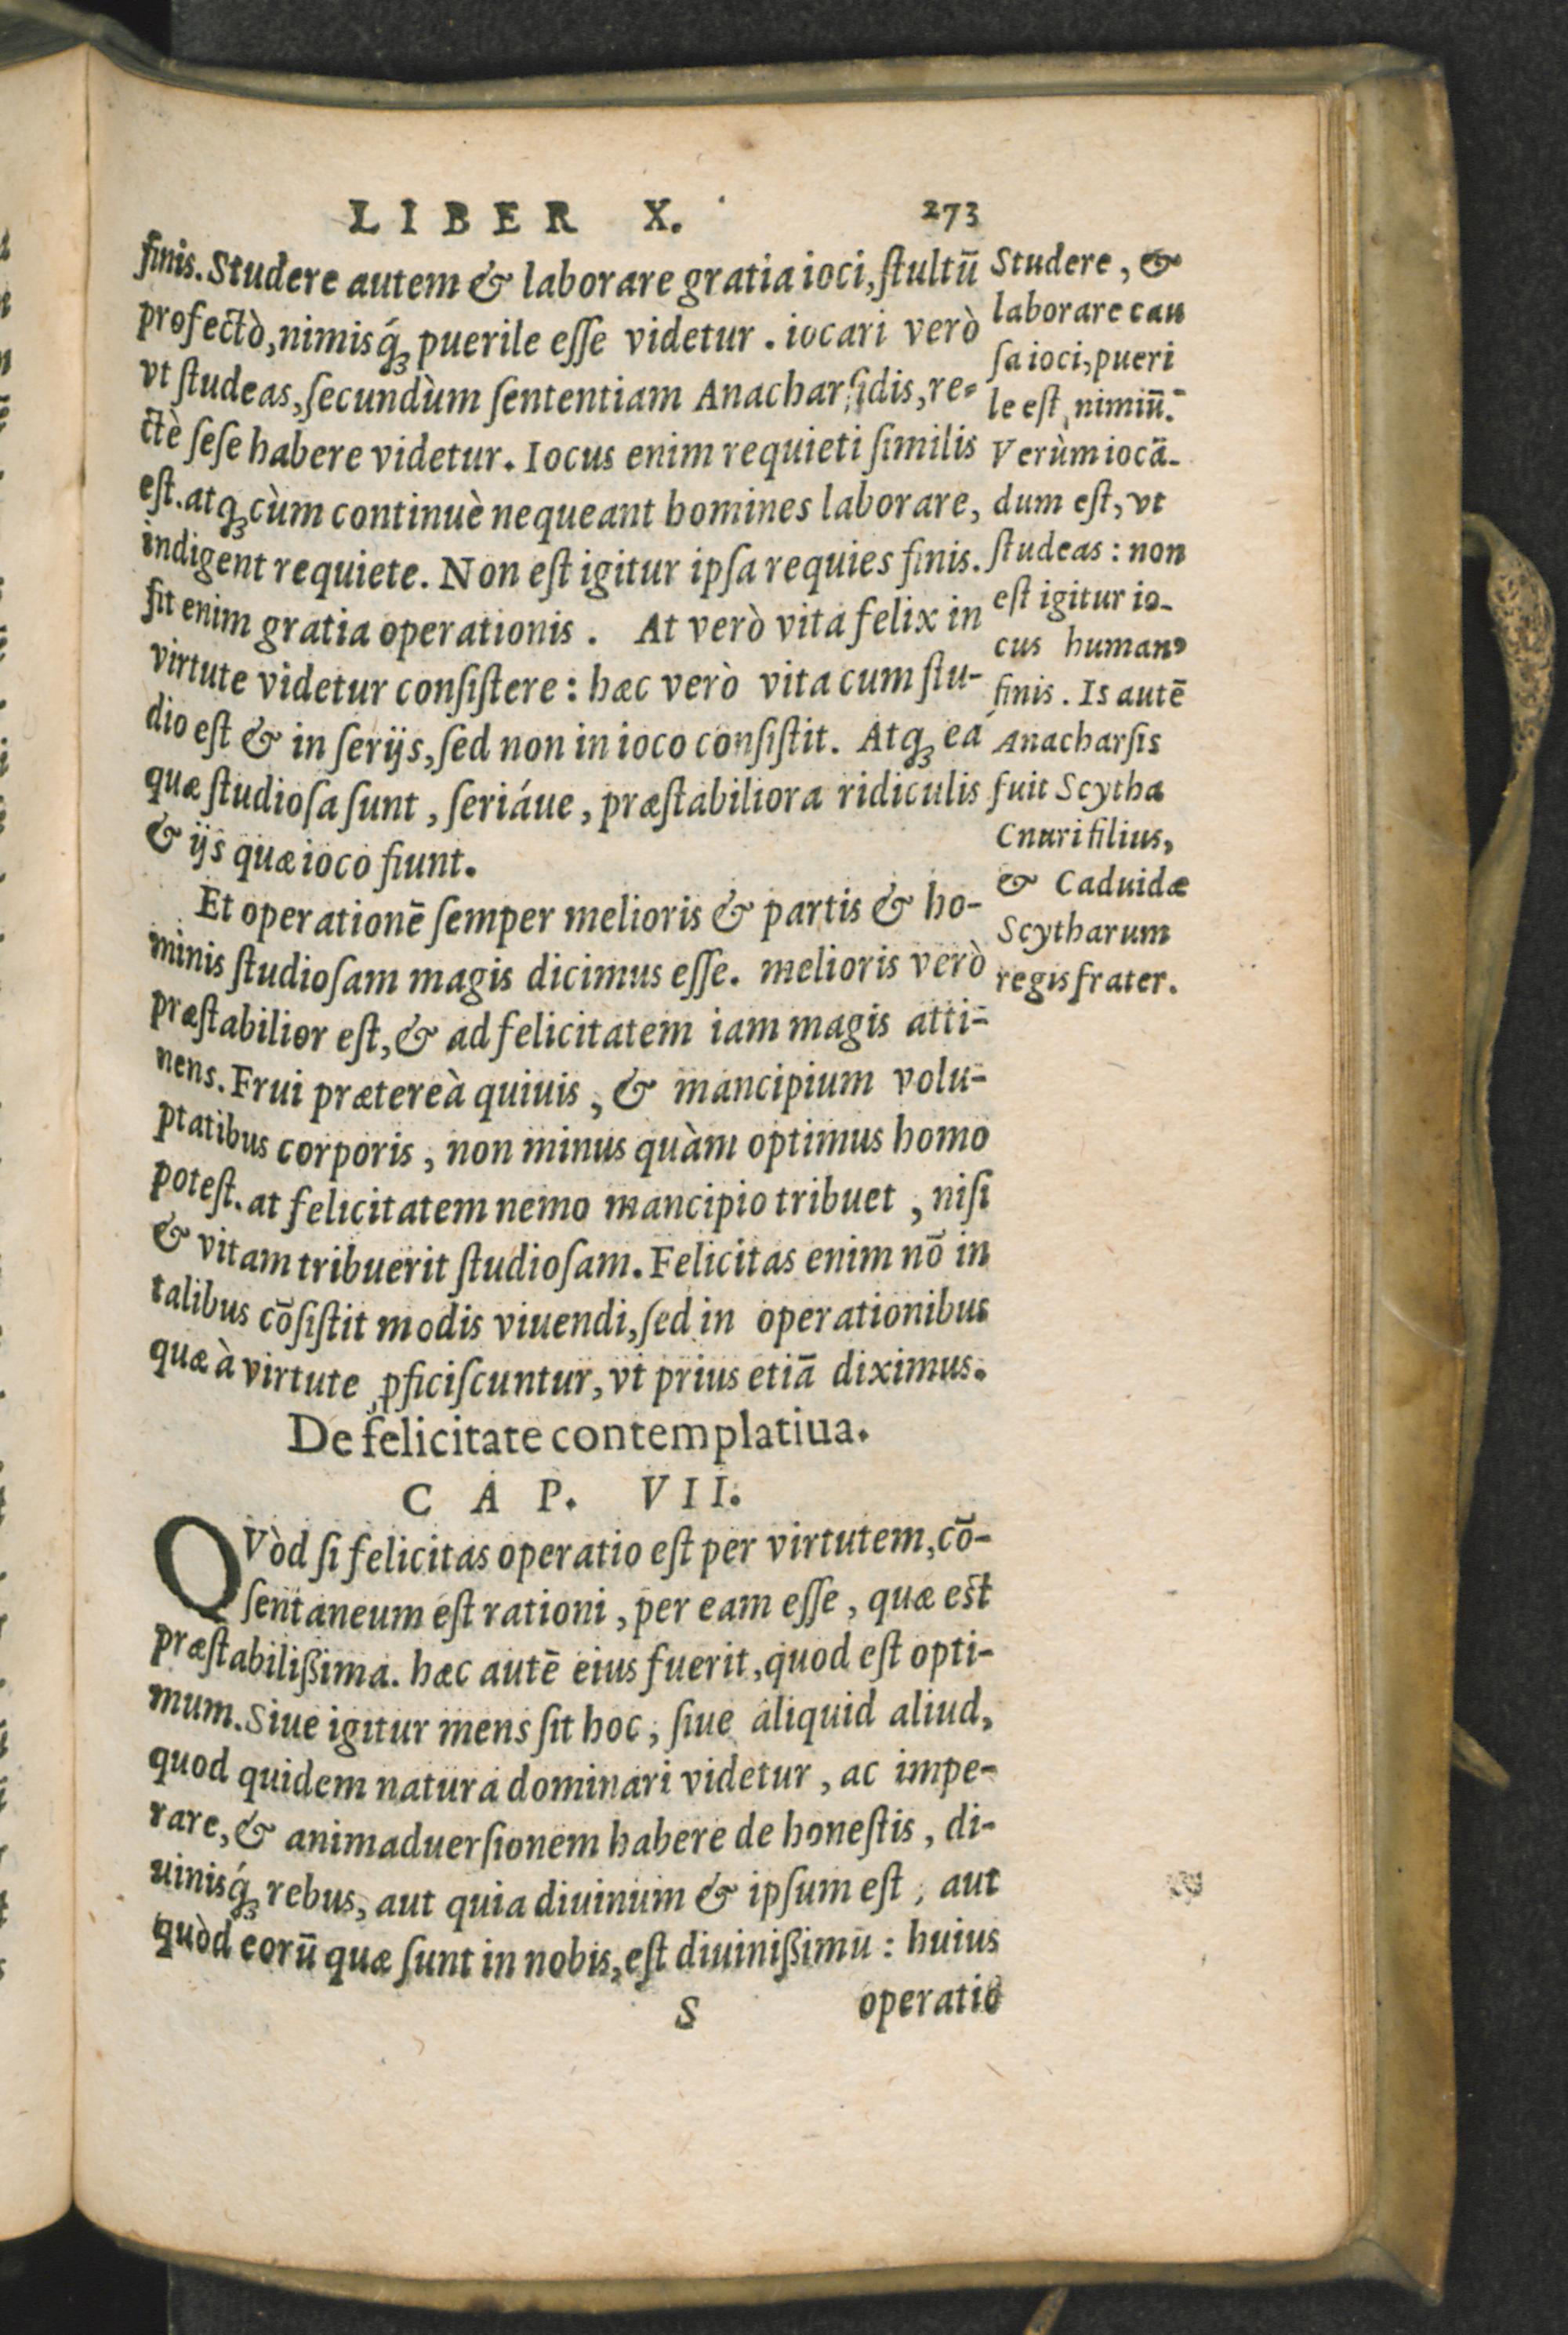 LIBER X. 273
finis. Studere autem & laborare gratia ioci, ſtultū
profectò, nimisq́ꝫ puerile eſſe videtur. iocari verò
vt ſtudeas, ſecundùm ſententiam Anacharſidis, re-
ctè ſeſe habere videtur. Iocus enim requieti ſimilis
eſt. atqꝫ cùm continuè nequeant homines laborare,
indigent requiete. Non eſt igitur ipſa requies finis.
fit enim gratia operationis. At verò vita felix in
virtute videtur conſiſtere: hæc verò vita cum ſtu-
dio eſt & in ſerijs, ſed non in ioco conſiſtit. Atqꝫ ea
quæ ſtudioſa ſunt, ſeriáue, præſtabiliora ridiculis
& ijs quæ ioco fiunt.
Et operationē ſemper melioris & partis & ho-
minis ſtudioſam magis dicimus eſſe. melioris verò
præſtabilior eſt, & ad felicitatem iam magis atti-
nens. Frui prætereà quiuis, & mancipium volu-
ptatibus corporis, non minus quàm optimus homo
poteſt. at felicitatem nemo mancipio tribuet, niſi
& vitam tribuerit ſtudioſam. Felicitas enim nō in
talibus cōſiſtit modis viuendi, ſed in operationibus
quæ à virtute ꝓficiſcuntur, vt prius etiā diximus.
De felicitate contemplatiua.
CAP. VII.
QVòd ſi felicitas operatio eſt per virtutem, cō-
ſentaneum eſt rationi, per eam eſſe, quæ eſt
præſtabilißima. hæc autē eius fuerit, quod eſt opti-
mum. Siue igitur mens ſit hoc, ſiue aliquid aliud,
quod quidem natura dominari videtur, ac impe-
rare, & animaduerſionem habere de honeſtis, di-
uinisq́ꝫ rebus, aut quia diuinum & ipſum eſt, aut
quòd eorū quæ ſunt in nobis, eſt diuinißimū: huius
S operatio
Studere, &
laborare cau
ſa ioci, pueri
le eſt nimiū.
Verùm iocā-
dum eſt, vt
ſtudeas: non
eſt igitur io-
cus humanꝰ
finis. Is autē
Anacharſis
fuit Scytha
Cnuri filius,
& Caduidæ
Scytharum
regis frater.